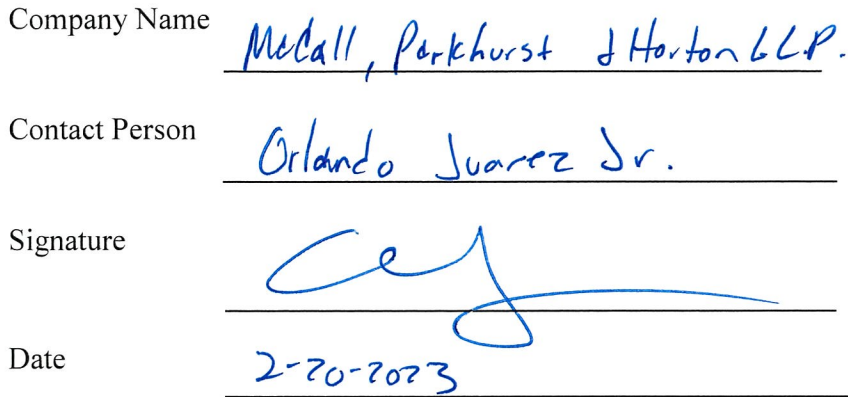 Company Name McCall, Parkhurst & Horton L.L.P.
Contact Person Orlando Juarez Jr.
Signature
Date 2-20-2023